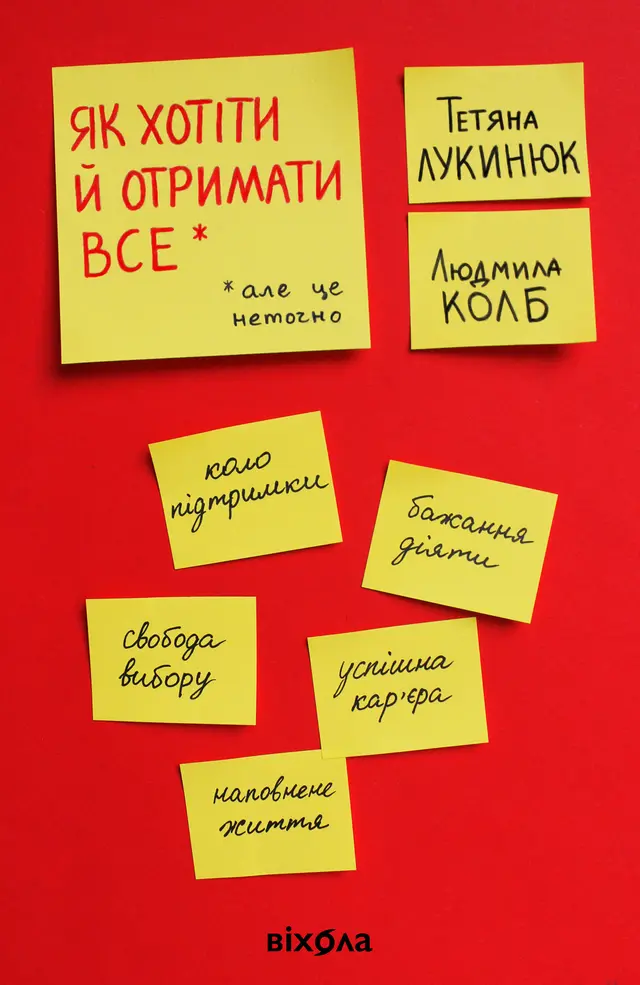 ЯК ХОТІТИ
Й ОТРИМАТИ
ВСЕ *
* але це
неточно
ТЕТЯНА
ЛУКИНЮК
ЛЮДМИЛА
КОЛБ
коло
підтримки
бажання
діяти
свобода
вибору
успішна
кар'єра
наповнене
життя
віхола